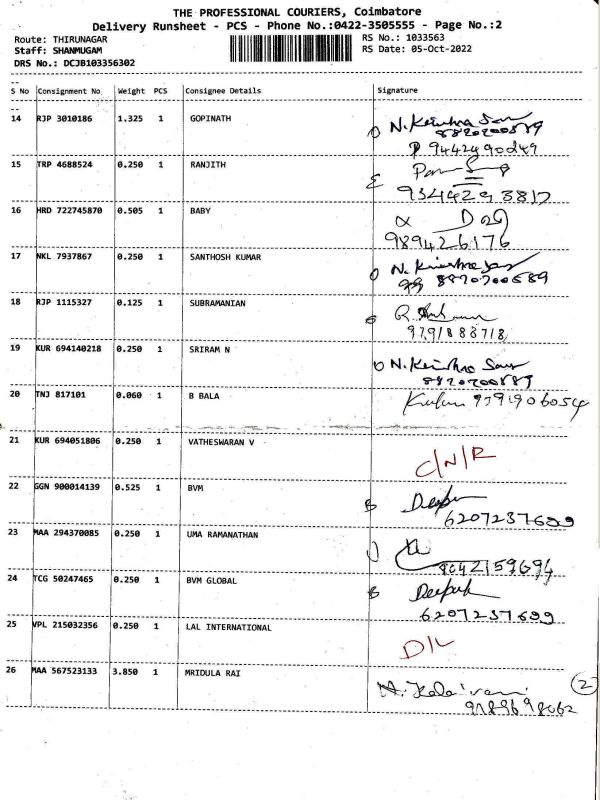 THE PROFESSIONAL COURIERS, Coimbatore
Delivery Runsheet - PCS - Phone No.:0422-3505555 - Page No.:2
Route: THIRUNAGAR
RS No.: 1033563
Staff: SHANMUGAM
RS Date: 05-Oct-2022
DRS No.: DCJB103356302
S No Consignment No Weight PCS Consignee Details Signature
14 RJP 3010186 1.325 1 GOPINATH
9442490249
15 TRP 4688524 0.250 1 RANJITH
16 HRD 722745870 0.505 1 BABY
9894426176
17 NKL 7937867 0.250 1 SANTHOSH KUMAR
18 RJP 1115327 0.125 1 SUBRAMANIAN
19 KUR 694140218 0.250 1 SRIRAM N
20 TNJ 817101 0.060 1 B BALA
21 KUR 694051806 0.250 1 VATHESWARAN V
C/N/R
22 GGN 900014139 0.525 1 BVM
B Deepak
6207237699
23 MAA 294370085 0.250 1 UMA RAMANATHAN
9042159694
24 TCG 50247465 0.250 1 BVM GLOBAL
B Deepak
6207237699
25 VPL 215032356 0.250 1 LAL INTERNATIONAL
D/L
26 MAA 567523133 3.850 1 MRIDULA RAI
2